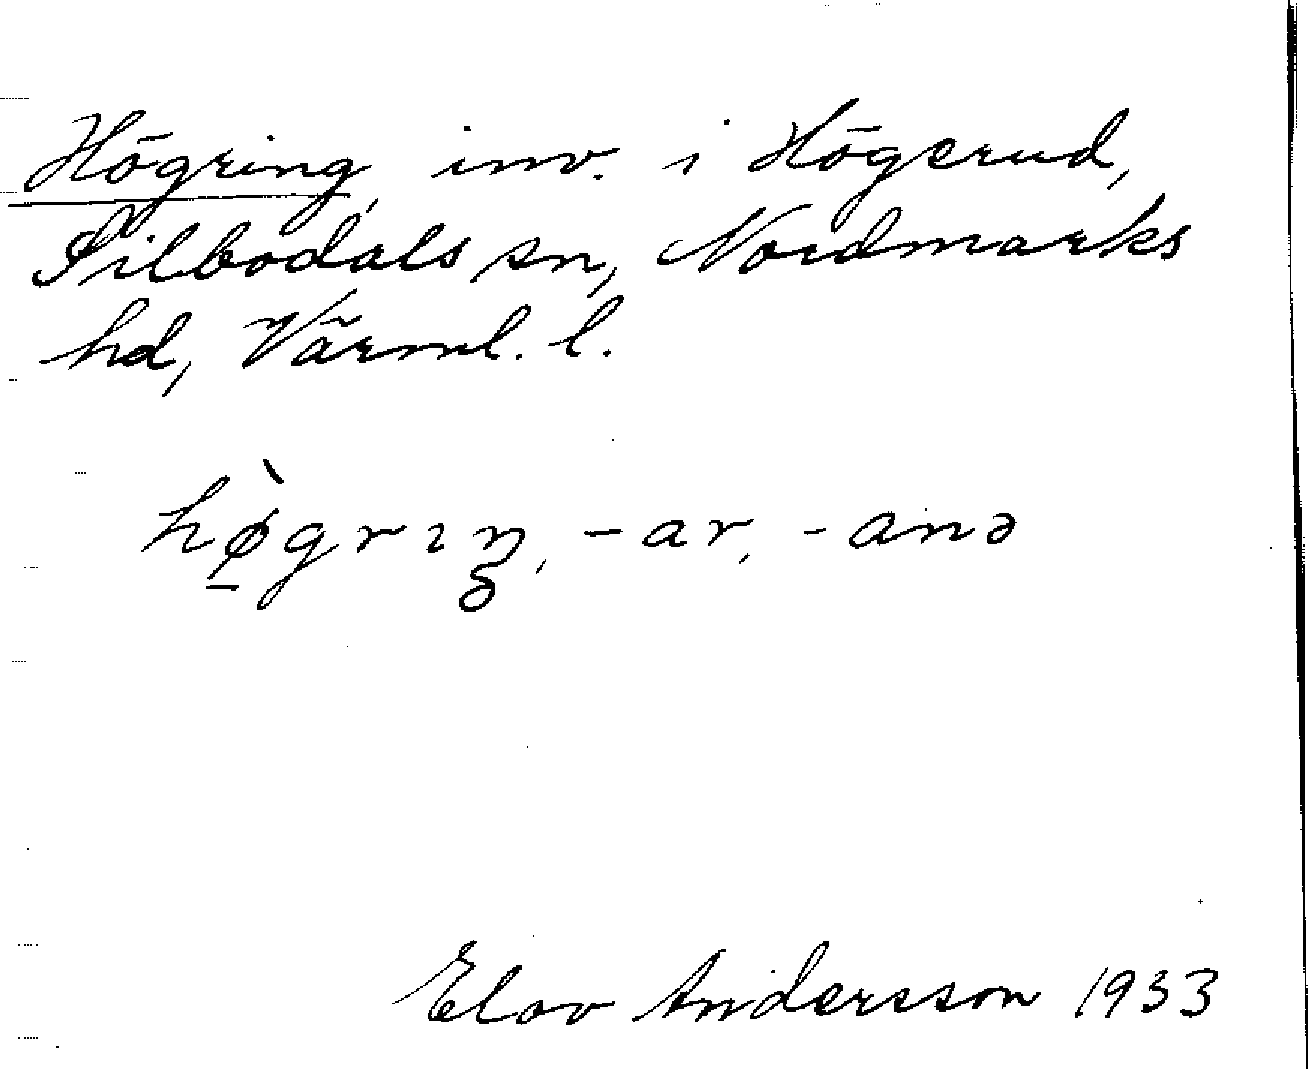 Högring, inv. i Högerud,
Silbodals sn, Nordmarks
hd, Värml. l.
hø̠̀grɪŋ, -ar, -anə
Elov Andersson 1933